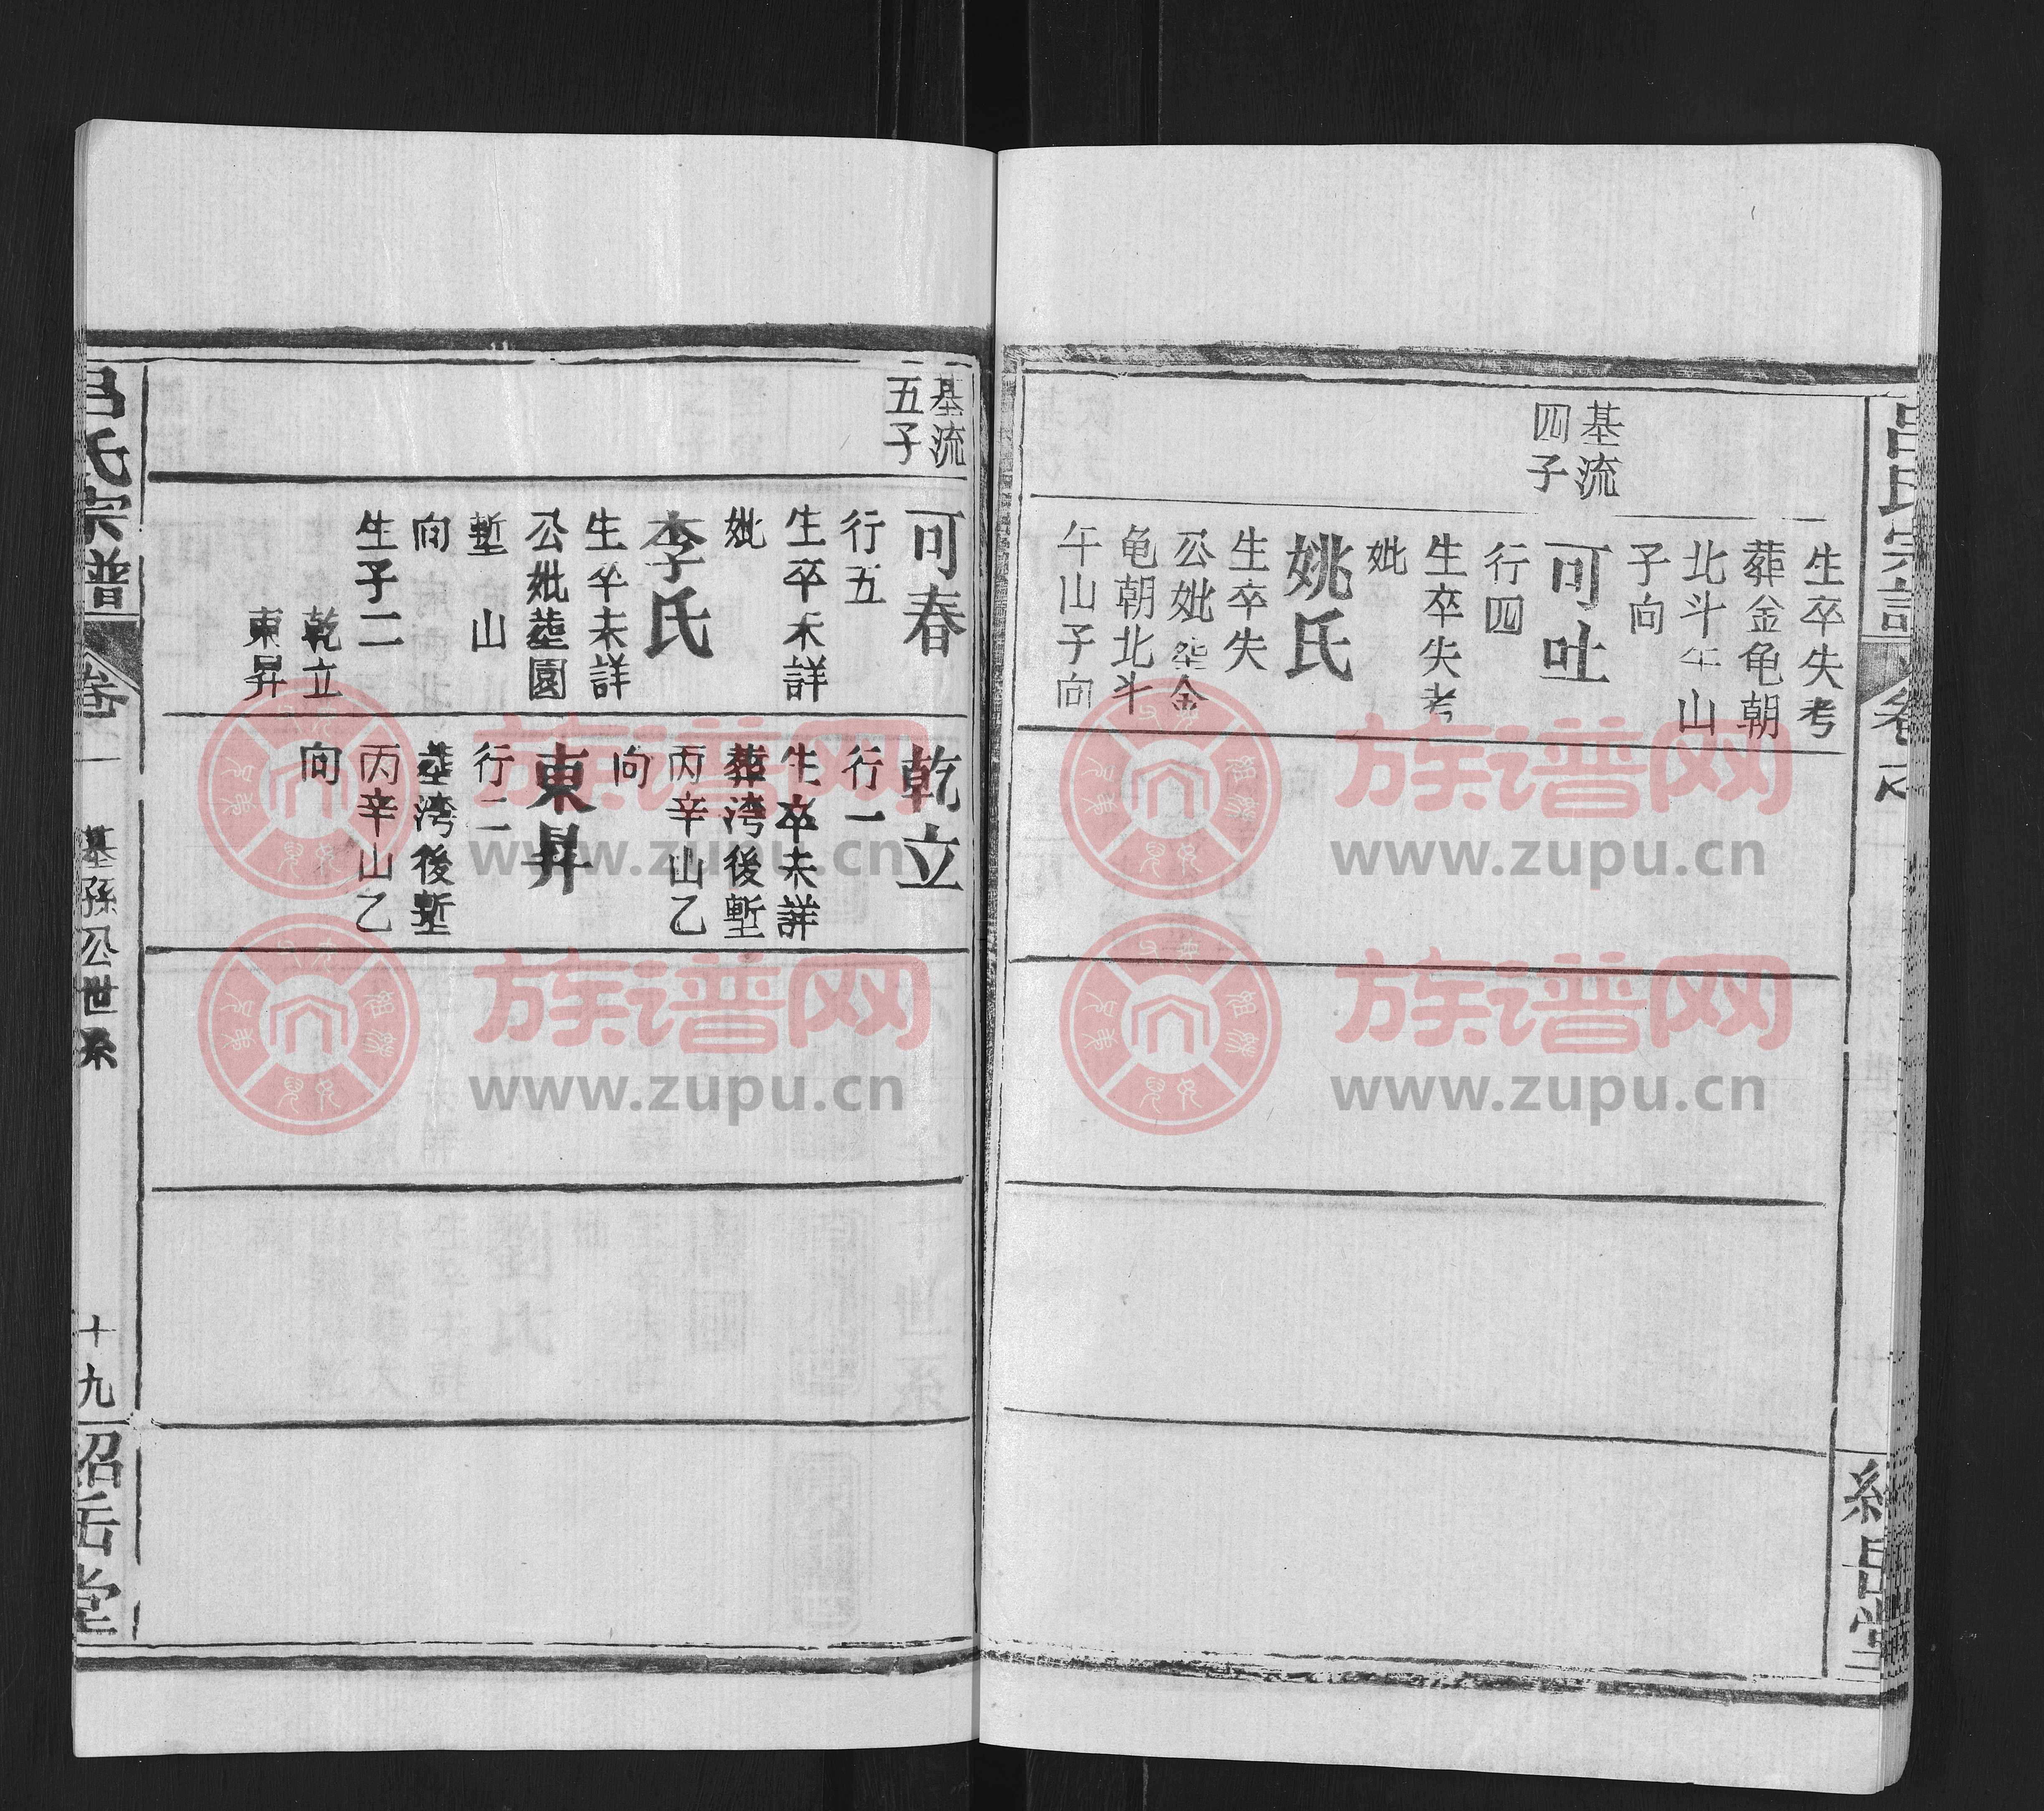 生卒失考
葬金龟朝
北斗午山
子向
基流
四子
可吐
行四
生卒失考
妣
姚氏
生卒失
公妣塟金
龟朝北斗
午山子向
基流
五子
可春
行五
生卒未詳
妣
李氏
生卒未詳
公妣塟園
塹 山
向
生子二
乾立
東昇
乾立
行一
生卒未詳
葬湾後塹
丙辛山乙
向
東昇
行二
塟湾後塹
丙辛山乙
向
吕氏宗譜
卷一
基孫公世系
十九
紹岳堂
族谱网
www.zupu.cn
族谱网
www.zupu.cn
族谱网
www.zupu.cn
族谱网
www.zupu.cn